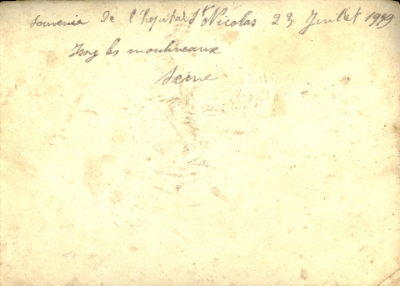 souvenir de l'hopital St Nicolas 23 Juillet 1919
Issy les moulineaux
Seine